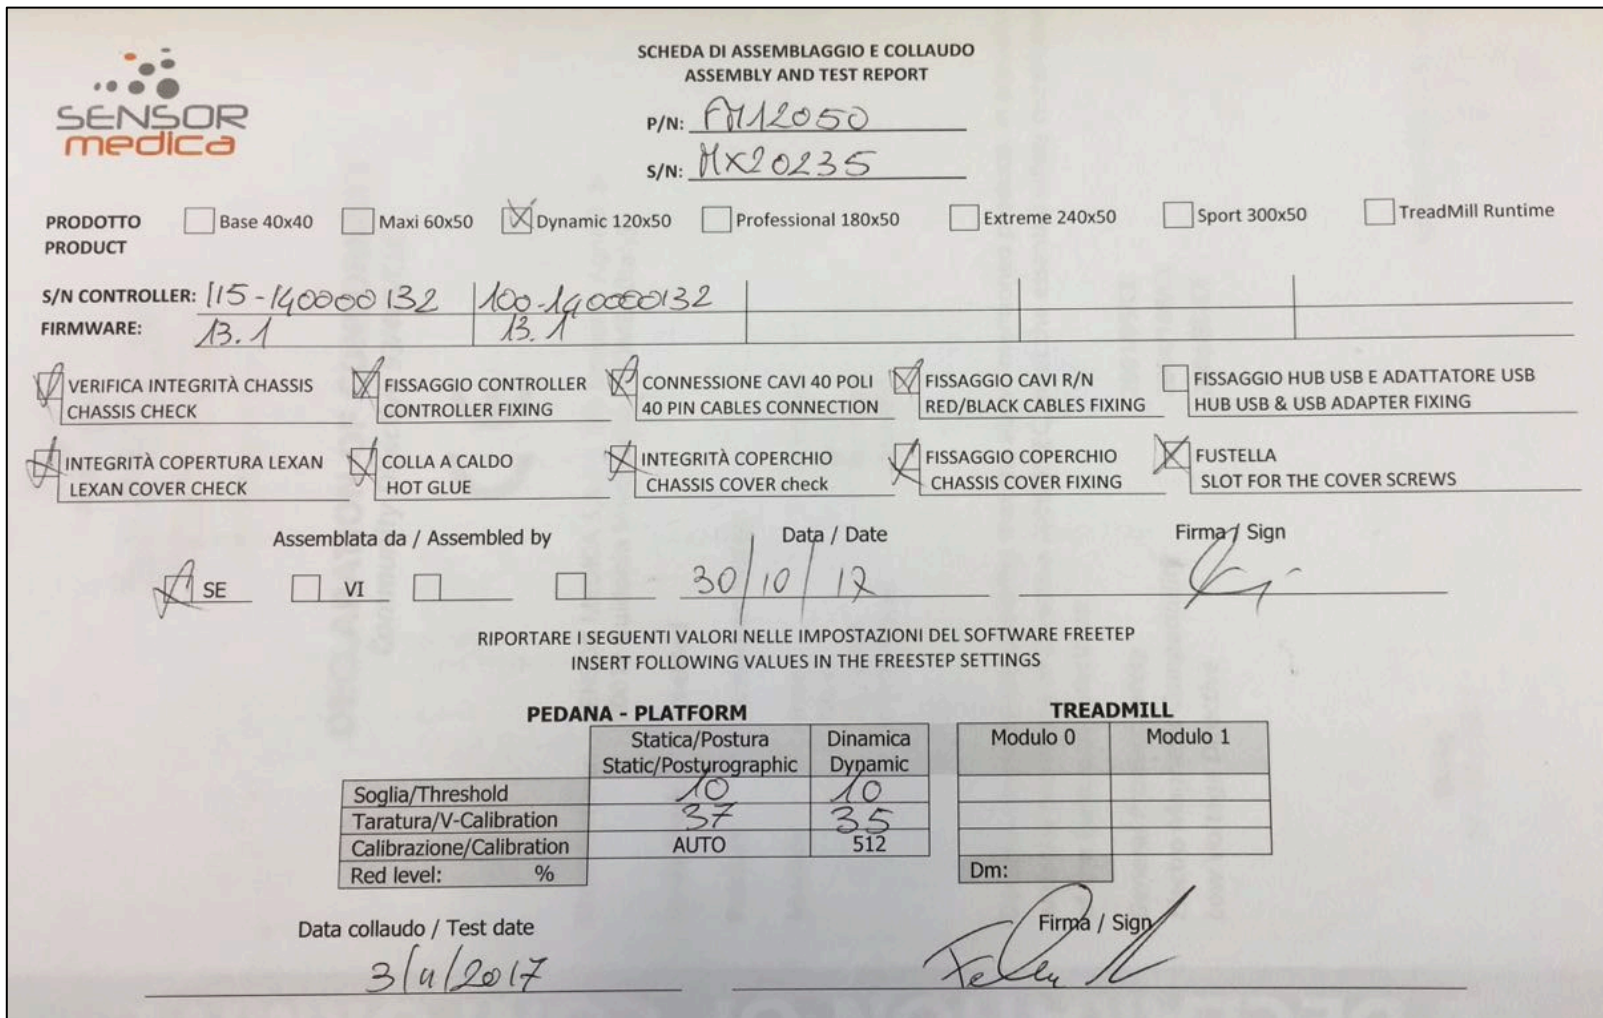 SENSOR
medica
SCHEDA DI ASSEMBLAGGIO E COLLAUDO
ASSEMBLY AND TEST REPORT
P/N: FM12050
S/N: MX20235
PRODOTTO
PRODUCT
Base 40x40 Maxi 60x50 Dynamic 120x50 Professional 180x50 Extreme 240x50 Sport 300x50 TreadMill Runtime
S/N CONTROLLER: 115-140000132 100-140000132
FIRMWARE: 13.1 13.1
VERIFICA INTEGRITÀ CHASSIS
CHASSIS CHECK
FISSAGGIO CONTROLLER
CONTROLLER FIXING
CONNESSIONE CAVI 40 POLI
40 PIN CABLES CONNECTION
FISSAGGIO CAVI R/N
RED/BLACK CABLES FIXING
FISSAGGIO HUB USB E ADATTATORE USB
HUB USB & USB ADAPTER FIXING
INTEGRITÀ COPERTURA LEXAN
LEXAN COVER CHECK
COLLA A CALDO
HOT GLUE
INTEGRITÀ COPERCHIO
CHASSIS COVER check
FISSAGGIO COPERCHIO
CHASSIS COVER FIXING
FUSTELLA
SLOT FOR THE COVER SCREWS
Assemblata da / Assembled by Data / Date Firma / Sign
SE VI 30/10/17
RIPORTARE I SEGUENTI VALORI NELLE IMPOSTAZIONI DEL SOFTWARE FREETEP
INSERT FOLLOWING VALUES IN THE FREESTEP SETTINGS
PEDANA - PLATFORM
Statica/Postura Dinamica
Static/Posturographic Dynamic
Soglia/Threshold 10 10
Taratura/V-Calibration 37 35
Calibrazione/Calibration AUTO 512
Red level: %
TREADMILL
Modulo 0 Modulo 1
Dm:
Data collaudo / Test date Firma / Sign
3/11/2017